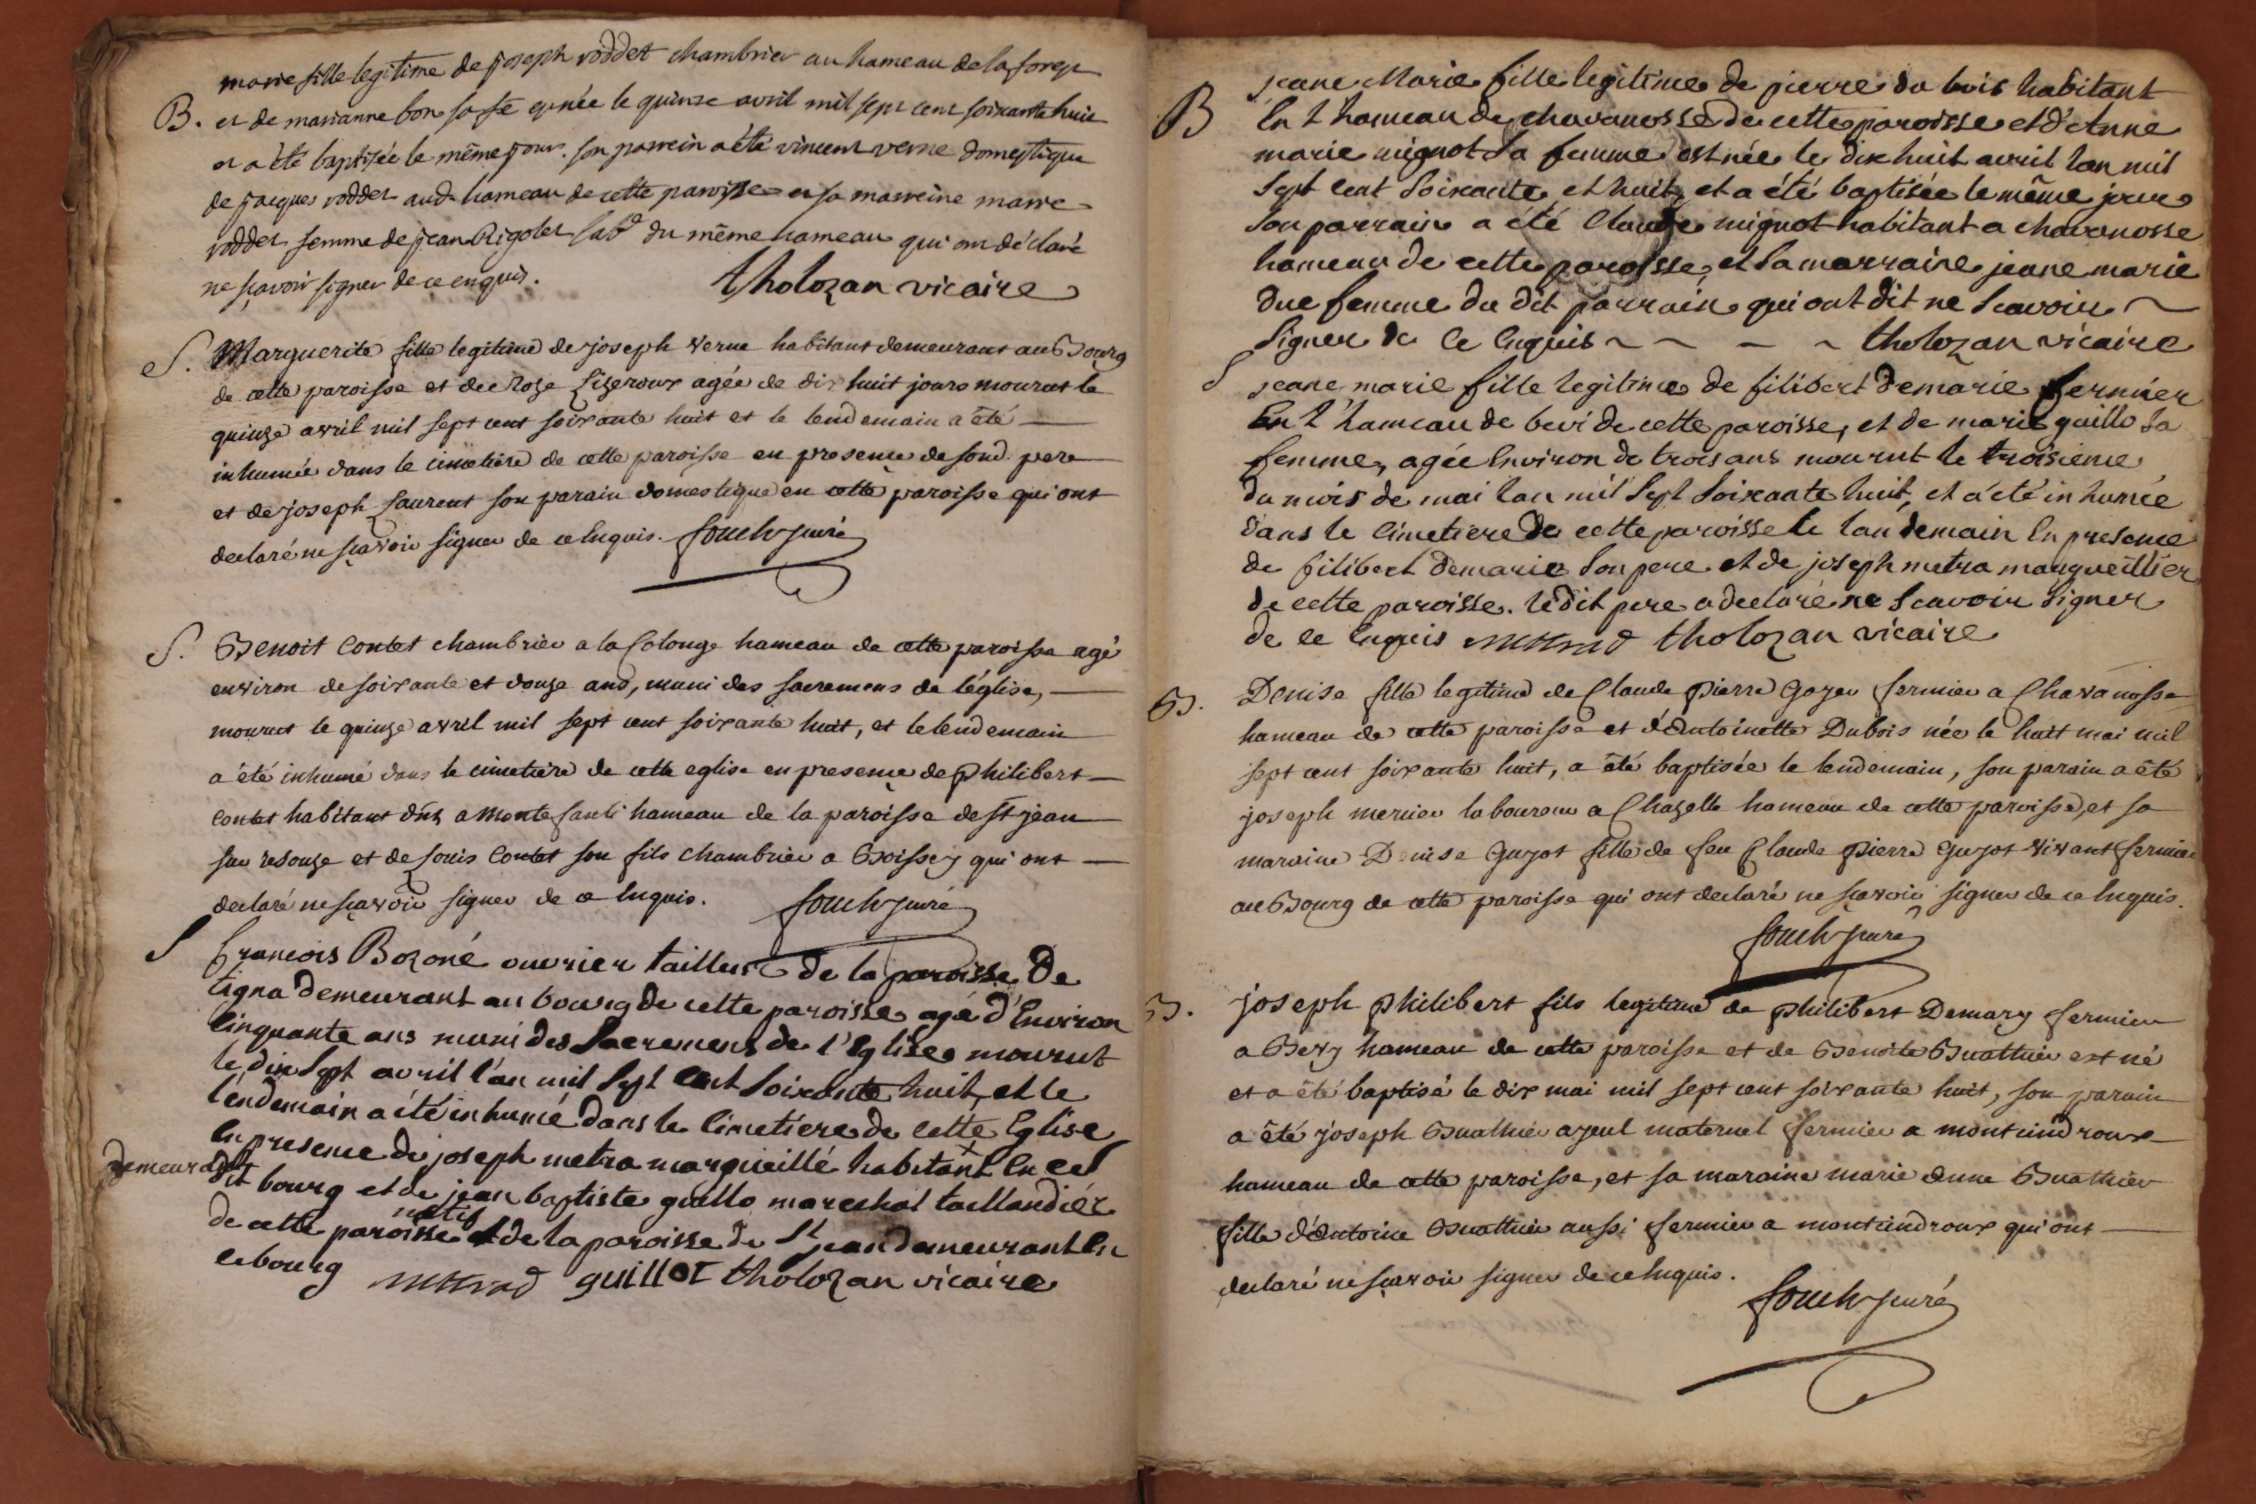 marie fille legitime de joseph voddet chambrier au hameau de la forest
B. et de marianne bon sa fe est née le quinze avril mil sept cent soixante huit
et a été baptisée le même jour. son parrein a été vincent verne domestique
de jacques voddet aud. hameau de cette paroisse et sa marreine marie
voddet femme de jean Rigolet labr du même hameau qui ont déclaré
ne sçavoir signer de ce enquis. tholozan vicaire
S. Marguerite fille legitime de joseph verne habitant demeurant au Bourg
de cette paroisse et de Roze Lizeroux agée de dix huit jours mourut le
quinze avril mil sept cent soixante huit et le lendemain a été
inhumée dans le cimetiere de cette paroisse en presence de sond. pere
et de joseph Laurent son parain domestique en cette paroisse qui ont
declaré ne sçavoir signer de ce Enquis. curé
S. Benoit Contet chambrier a la Colonge hameau de cette paroisse agé
environ de soixante et douze ans, muni des sacremens de l'église,
mourut le quinze avril mil sept cent soixante huit, et le lendemain
a été inhumé dans le cimetiere de cette eglise en presence de philibert
contet habitant a hameau de la paroisse de st jean
sur resouze et de Louis Contet son fils chambrier a Boissey qui ont
declaré ne sçavoir signer de ce Enquis. curé
S francois Bozoné ouvrier tailleur de la paroisse de
tigna demeurant au bourg de cette paroisse agé d'Environ
Cinquante ans muni des Sacremens de l'Eglise mourut
le dix sept avril l'an mil sept cent Soixante huit, et le
l'endemain a été inhumé dans le Cimetiere de cette Eglise
En presence de joseph metra margueillé habitant En ce
demeurant dit bourg et de jean baptiste guillo mareshal taillandiér
natif
de cette paroisse de la paroisse de St jean demeurant En
ce bourg metrad guillot tholozan vicaire
B jeane Marie fille legitime de pierre du bois habitant
En l'hameau de chavanosse de cette paroisse et d'Anne
marie mignot Sa femme est née le dix huit avril l'an mil
Sept Cent Soixante et huit, et a été baptisée le même jour
Son parrain a été Claude mignot habitant a chavanosse
hameau de cette paroisse, et Sa marraine jeane marie
due femme du dit parrain qui ont dit ne Scavoir ~
Signer de Ce Enquis ~ ~ — ~ tholozan vicaire
S jeane marie fille legitime de filibert demarie fermiér
En l'hameau de bevi de cette paroisse, et de marie guillo Sa
femme, agée Environ de trois ans mourut le troisieme
du mois de mai l'an mil Sept Soixante huit, et a été inhumée
dans le Cimetiere de cette paroisse le landemain En presence
de filibert demarie Son pere et de joseph metra margueillier
de cette paroisse. le dit pere a declaré ne Scavoir Signer
de ce Enquis metrad tholozan vicaire
B. Denise fille legitime de Claude pierre Goyer fermier a Chavanosse
hameau de cette paroisse et d'Antoinette Dubois née le huit mai mil
sept cent soixante huit, a été baptisée le lendemain, son parain a été
joseph mercier laboureur a Chazelle hameau de cette paroisse, et sa
maraine Denise Guyot fille de feu Claude pierre Guyot vivant fermier
au Bourg de cette paroisse qui ont declaré ne sçavoir signer de ce Enquis.
curé
B. joseph philibert fils legitime de philibert Demary fermier
a Bevy hameau de cette paroisse et de Benoite Buathier est né
et a été baptisé le dix mai mil sept cent soixante huit, son parain
a été joseph Buathier ayeul maternel fermier a montcindroux
hameau de cette paroisse, et sa maraine marie Anne Buathier
fille d'Antoine Buathier aussi fermier a montcindroux qui ont
declaré ne sçavoir signer de ce Enquis.
curé